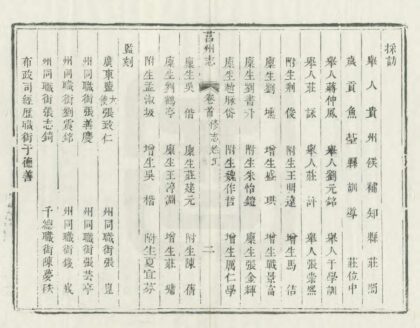 採訪
舉人貴州候補知縣莊
歲貢魚臺縣訓導莊位中
舉人蔣仲鳳 舉人劉元銘 舉人于學訓
舉人莊詠 舉人莊許 舉人張崇熙
附生劉俊 附生王明遠 增生馬佶
廩生劉壎 增生盛琪 增生戰景富
廩生劉書升 附生朱怡鎧 廩生張金輝
廩生趙岱 附生魏作哲 增生厲仁學
莒州志 卷首 修志姓氏 二
廩生吳僑 廩生莊建元 附生陳倩
廩生劉鶴亭 廩生王淳涵 增生莊墉
附生孟淑 增生吳楷 附生夏宜芬
監刻
廣東鹽大使張致仁 州同職銜張
州同職銜張善慶 州同職銜張芸亭
州同職銜劉震銘 州同職銜錢
州同職銜張志鈞 千總職銜陳夢秋
布政司經歷職銜于德善